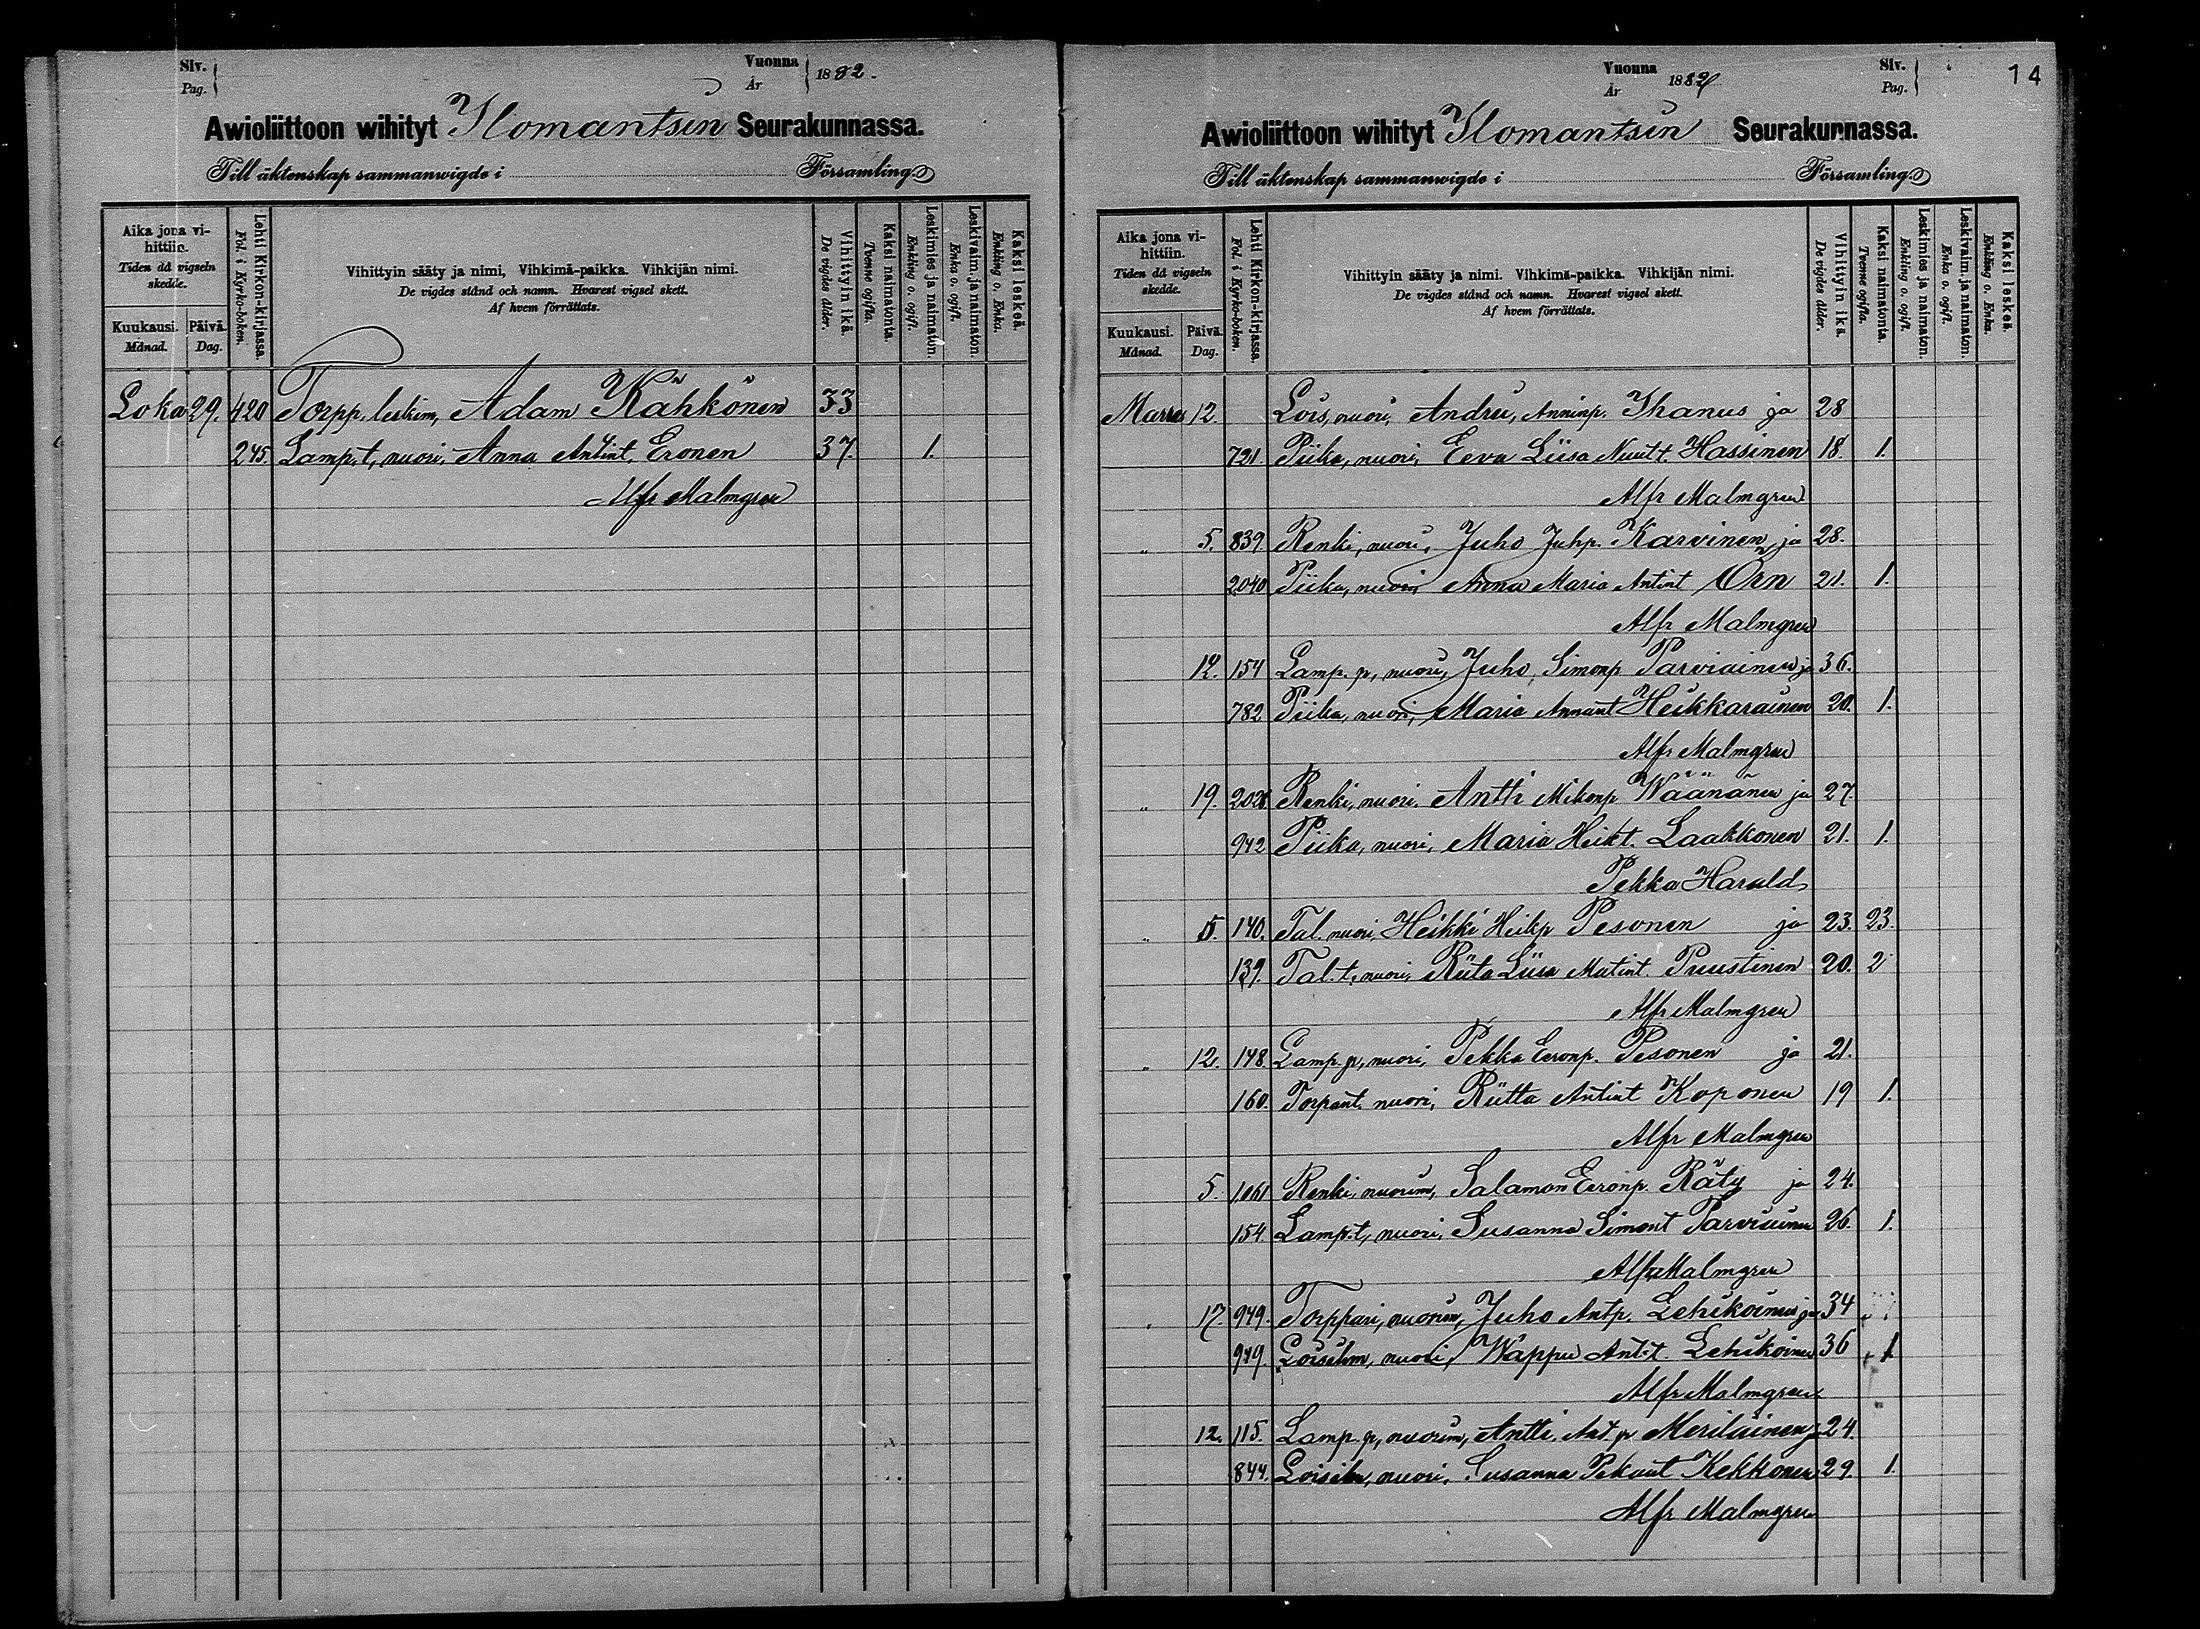 Siv.
Pag.
Vuonna
År
1882.
Awioliittoon wihityt Ilomantsin Seurakunnassa.
Till äktenskap sammanwigde i Församling.
Aika jona vihittiin.
Tiden då vigseln skedde.
Kuukausi.
Månad.
Päivä.
Dag.
Lehti Kirkon-kirjassa.
Fol. i Kyrko-boken.
Vihittyin sääty ja nimi, Vihkimä-paikka. Vihkijän nimi.
De vigdes stånd och namn. Hvarest vigsel skett.
Af hvem förrättats.
Vihittyin ikä.
De vigdes ålder.
Kaksi naimatonta.
Tvenne ogifta.
Leskimies ja naimaton.
Enkling o. ogift.
Leskivaim. ja naimaton.
Enka o. ogift.
Kaksi leskeä.
Enkling o. Enka.
Loka 29. 420 Torpp. leskim, Adam Kähkönen 33
245. Lamp.t, nuori, Anna Antint. Eronen 37. 1.
Alfr Malmgren
14
Vuonna
År
1882
Siv.
Pag.
Awioliittoon wihityt Ilomantsin Seurakunnassa.
Till äktenskap sammanwigde i Församling.
Aika jona vihittiin.
Tiden då vigseln skedde.
Kuukausi.
Månad.
Päivä.
Dag.
Lehti Kirkon-kirjassa.
Fol. i Kyrko-boken.
Vihittyin sääty ja nimi. Vihkimä-paikka. Vihkijän nimi.
De vigdes stånd och namn. Hvarest vigsel skett.
Af hvem förrättats.
Vihittyin ikä.
De vigdes ålder.
Kaksi naimatonta.
Tvenne ogifta.
Leskimies ja naimaton.
Enkling o. ogift.
Leskivaim. ja naimaton.
Enka o. ogift.
Kaksi leskeä.
Enkling o. Enka.
Marras 12. Lois, nuori, Andrei, Anninp. Ihanus ja 28
721. Piika, nuori, Eeva Liisa Nuutt. Hassinen 18. 1.
Alfr Malmgren
" 5. 839. Renki, nuori, Juho Juhp. Karvinen ja 28.
2040 Piika, nuori Anna Maria Antint Orn 21. 1.
Alfr Malmgren
12. 154 Lamp. p, nuori, Juho, Simonp Parviainen ja 36.
782 Piika, nuori, Maria Heikkarainen 20. 1.
Alfr Malmgren
" 19. Renki, nuori, Antti Mikonp Wäänänen ja 27.
942 Piika, nuori, Maria Heikt. Laakkonen 21. 1.
Pekka Harald
" 5. 140. Tal. nuori, Heikki Heikp Pesonen ja 23. 23.
139. Tal.t, nuori, Riita Liisa Matint Puustinen 20. 2
Alfr Malmgren
" 12. 148. Lamp. p, nuori, Pekka Eeronp. Pesonen ja 21.
160. Torpant. nuori, Riitta Antint Koponen 19 1.
Alfr Malmgren
5. 1061 Renki, nuorim, Salamon Eeronp. Räty ja 24.
154. Lamp.t, nuori, Susanna Simont Parviainen 26. 1.
Alfr Malmgren
" 17. 949. Torppari, nuorim, Juho Antp. Lehikoinen ja 34
949. nuori, Wappu Ant.t. Lehikoinen 36 1
Alfr Malmgren
12. 115. Lamp. p, nuorim, Antti, Ant.p Meriläinen ja 24.
844. nuori, Susanna Pekant Kekkonen 29. 1.
Alfr Malmgren